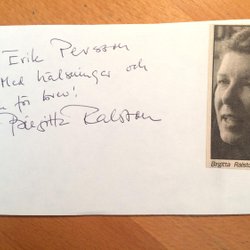 Erik Persson
Med hälsningar och
för brev!
Birgitta Ralston
Birgitta Ralsto